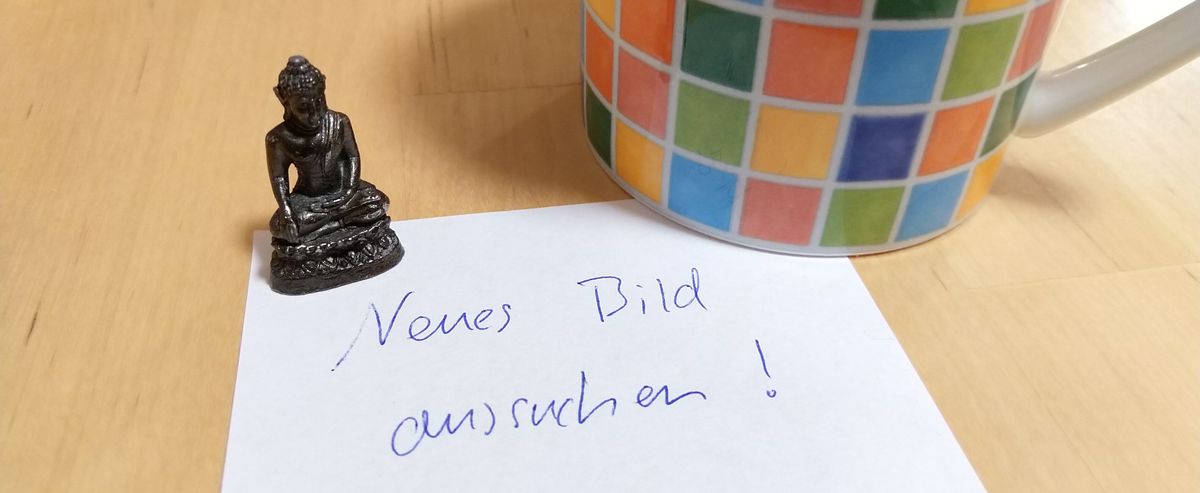 Neues Bild
aussuchen!